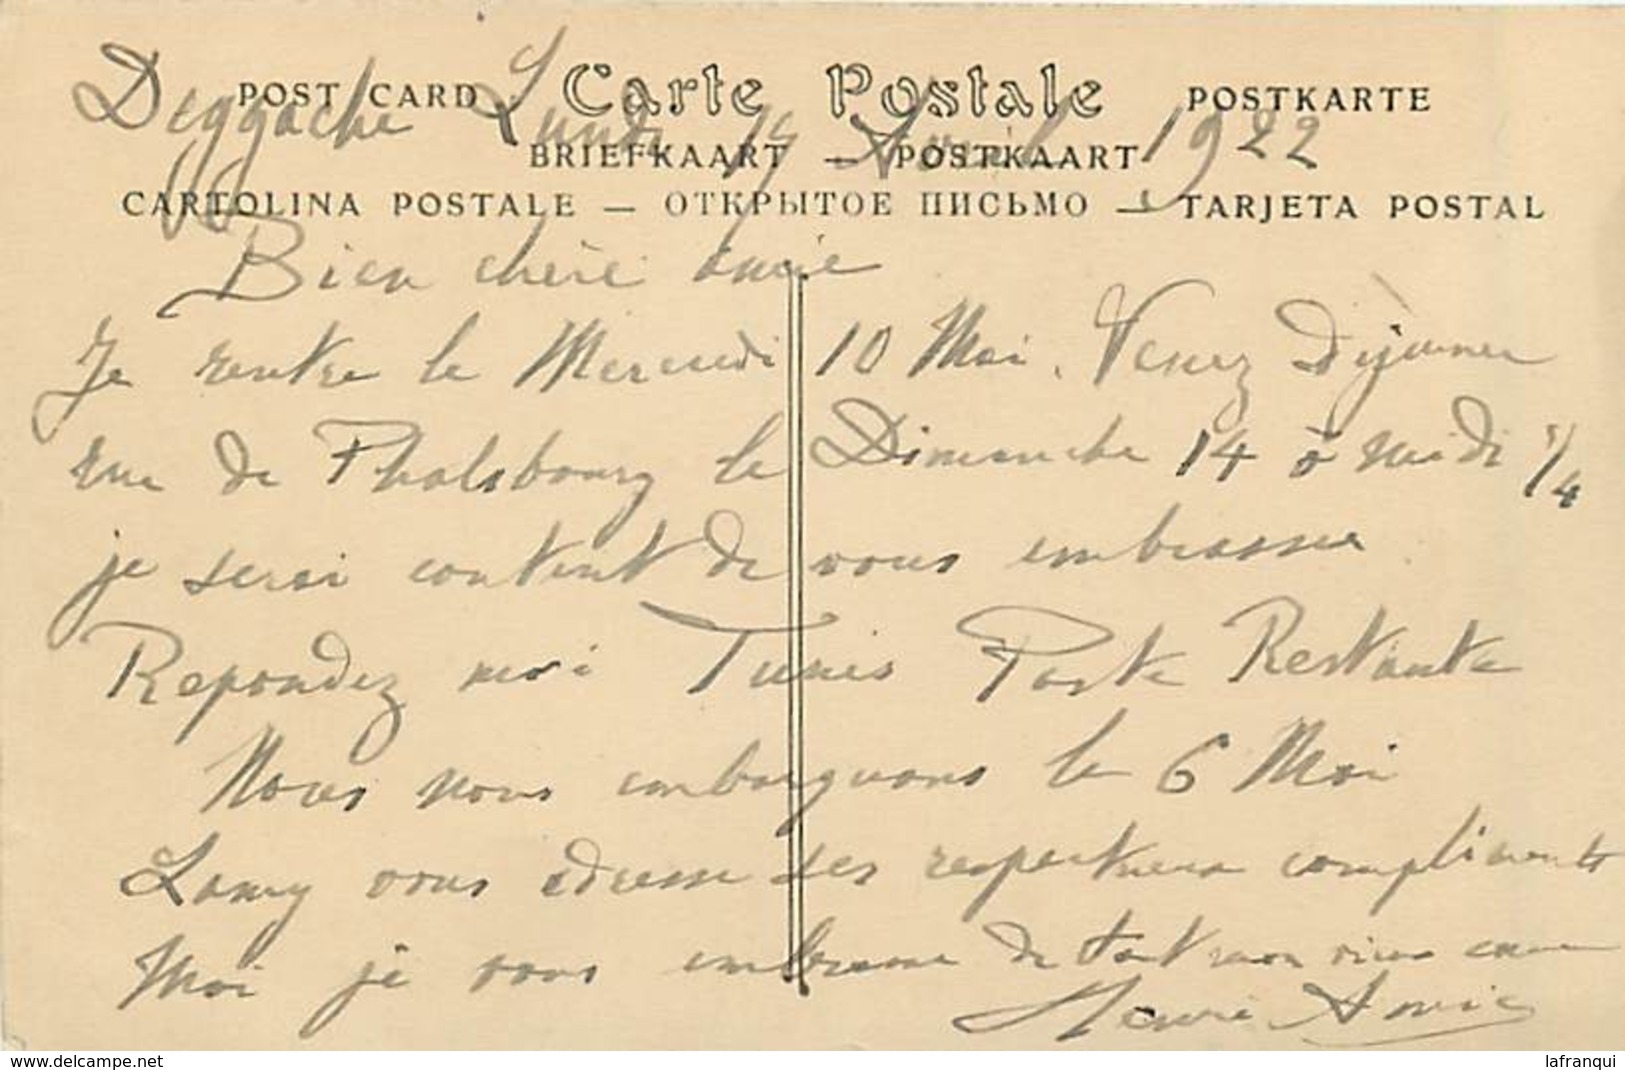 POST CARD Carte Postale POSTKARTE
BRIEFKAART — POSTKAART
CARTOLINA POSTALE — ОТКРЫТОЕ ПИСЬМО — TARJETA POSTAL
Deggache Lundi 17 Avril 1922
Bien chère amie
Je rentre le Mercredi 10 Mai. Venez Déjeuner
rue de Phalsbourg le Dimanche 14 à midi 1/4
je serai content de vous embrasser
Repondez moi Tunis Poste Restante
Nous nous embarquons le 6 Mai
Lamy vous adresse ses respectueux compliments
Moi je vous embrasse de tout mon vieux cœur
Henri
delcampe.net
lafranqui